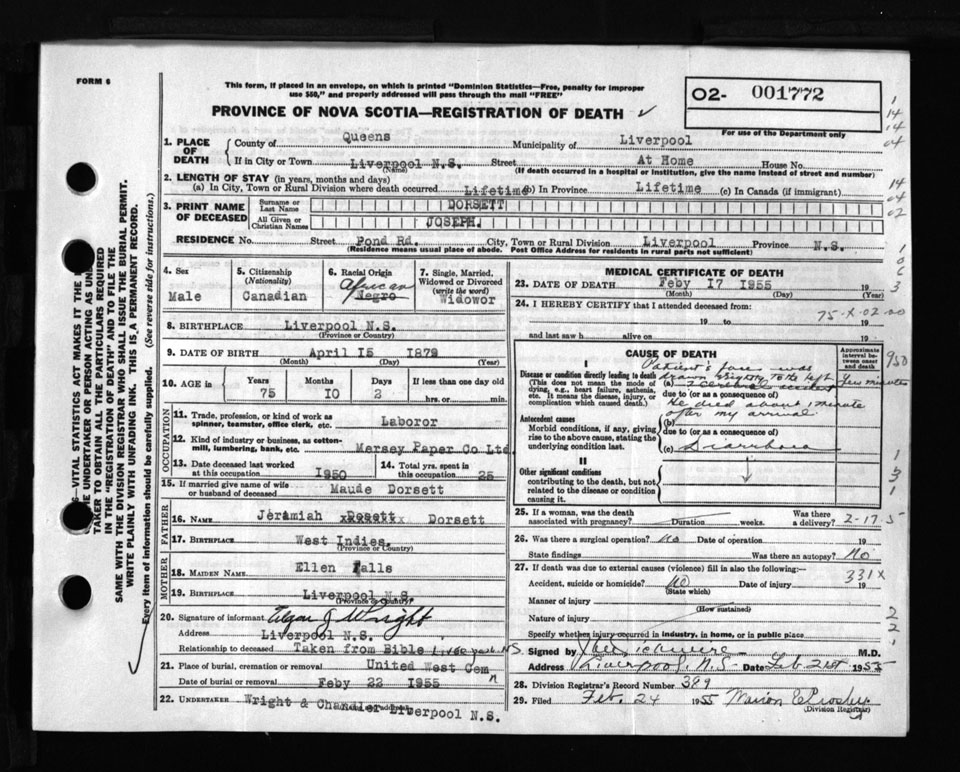 FORM 6
This form, if placed in an envelope, on which is printed "Dominion Statistics—Free, penalty for improper
use $50," and properly addressed will pass through the mail "FREE"
PROVINCE OF NOVA SCOTIA—REGISTRATION OF DEATH ✓
02- 001772
For use of the Department only
1. PLACE OF DEATH
County of Queens Municipality of Liverpool
If in City or Town Liverpool N.S. Street At Home House No.
(Name) (If death occurred in a hospital or institution, give the name instead of street and number)
2. LENGTH OF STAY (in years, months and days)
(a) In City, Town or Rural Division where death occurred Lifetime (b) in Province Lifetime (c) In Canada (if immigrant)
3. PRINT NAME OF DECEASED
Surname or Last Name DORSETT
All Given or Christian Names JOSEPH.
RESIDENCE No. Street Pond Rd. City, Town or Rural Division Liverpool Province N.S.
(Residence means usual place of abode. Post Office Address for residents in rural parts not sufficient)
4. Sex
Male
5. Citizenship
(Nationality)
Canadian
6. Racial Origin
African
Negro
7. Single, Married,
Widowed or Divorced
(write the word)
Widowor
8. BIRTHPLACE Liverpool N.S.
(Province or Country)
9. DATE OF BIRTH April 15 1879
(Month) (Day) (Year)
10. AGE in
Years 75
Months 10
Days 2
If less than one day old
hrs. or min.
OCCUPATION
11. Trade, profession, or kind of work as
spinner, teamster, office clerk, etc. Laboror
12. Kind of industry or business, as cotton-
mill, lumbering, bank, etc. Mersey Paper Co Ltd.
13. Date deceased last worked
at this occupation 1950
14. Total yrs. spent in
this occupation 25
15. If married give name of wife
or husband of deceased Maude Dorsett
FATHER
16. NAME Jeramiah Dosett xxxxxxxx Dorsett
17. BIRTHPLACE West Indies.
(Province or Country)
MOTHER
18. MAIDEN NAME Ellen Falls
19. BIRTHPLACE Liverpool N.S.
(Province or Country)
20. Signature of informant J Wright
Address Liverpool N.S.
Relationship to deceased Taken from Bible Liverpool N.S.
21. Place of burial, cremation or removal United West Cem
Date of burial or removal Feby 22 1955
22. UNDERTAKER Wright & Chandler Liverpool N.S.
MEDICAL CERTIFICATE OF DEATH
23. DATE OF DEATH Feby 17 1955 19
(Month) (Day) (Year)
24. I HEREBY CERTIFY that I attended deceased from:
75-X-02-00
19 to 19
and last saw h alive on 19
CAUSE OF DEATH
Approximate
interval be-
tween onset
and death
I
Disease or condition directly leading to death
(This does not mean the mode of
dying, e.g., heart failure, asthenia,
etc. It means the disease, injury, or
complication which caused death.)
Patient's face was
drawn slightly to the left
(a) ? Cerebral accident few minutes
due to (or as a consequence of)
He died about 1 minute
after my arrival.
Antecedent causes
Morbid conditions, if any, giving
rise to the above cause, stating the
underlying condition last.
(b)
due to (or as a consequence of)
(c) Diarrhoea
II
Other significant conditions
contributing to the death, but not
related to the disease or condition
causing it.
25. If a woman, was the death
associated with pregnancy? Duration weeks. Was there
a delivery? 2-17-5
26. Was there a surgical operation? No Date of operation 19
State findings Was there an autopsy? No
27. If death was due to external causes (violence) fill in also the following:—
331X
Accident, suicide or homicide? No Date of injury 19
(State which)
Manner of injury
(How sustained)
Nature of injury
Specify whether injury occurred in industry, in home, or in public place
Signed by M.D.
Address Liverpool, N.S. Date Feb 21st 1955
28. Division Registrar's Record Number 399
29. Filed Feb. 24 1955 Marion E Crosby
(Division Registrar)
VITAL STATISTICS ACT MAKES IT THE
THE UNDERTAKER OR PERSON ACTING AS UN
TAKER TO OBTAIN ALL THE PARTICULARS REQUIRED
IN THE "REGISTRATION OF DEATH" AND TO FILE THE
SAME WITH THE DIVISION REGISTRAR WHO SHALL ISSUE THE BURIAL PERMIT.
WRITE PLAINLY WITH UNFADING INK. THIS IS A PERMANENT RECORD.
Every item of information should be carefully supplied. (See reverse side for instructions.)
1
14
14
04
14
04
02
950
1
3
1
2
2
1